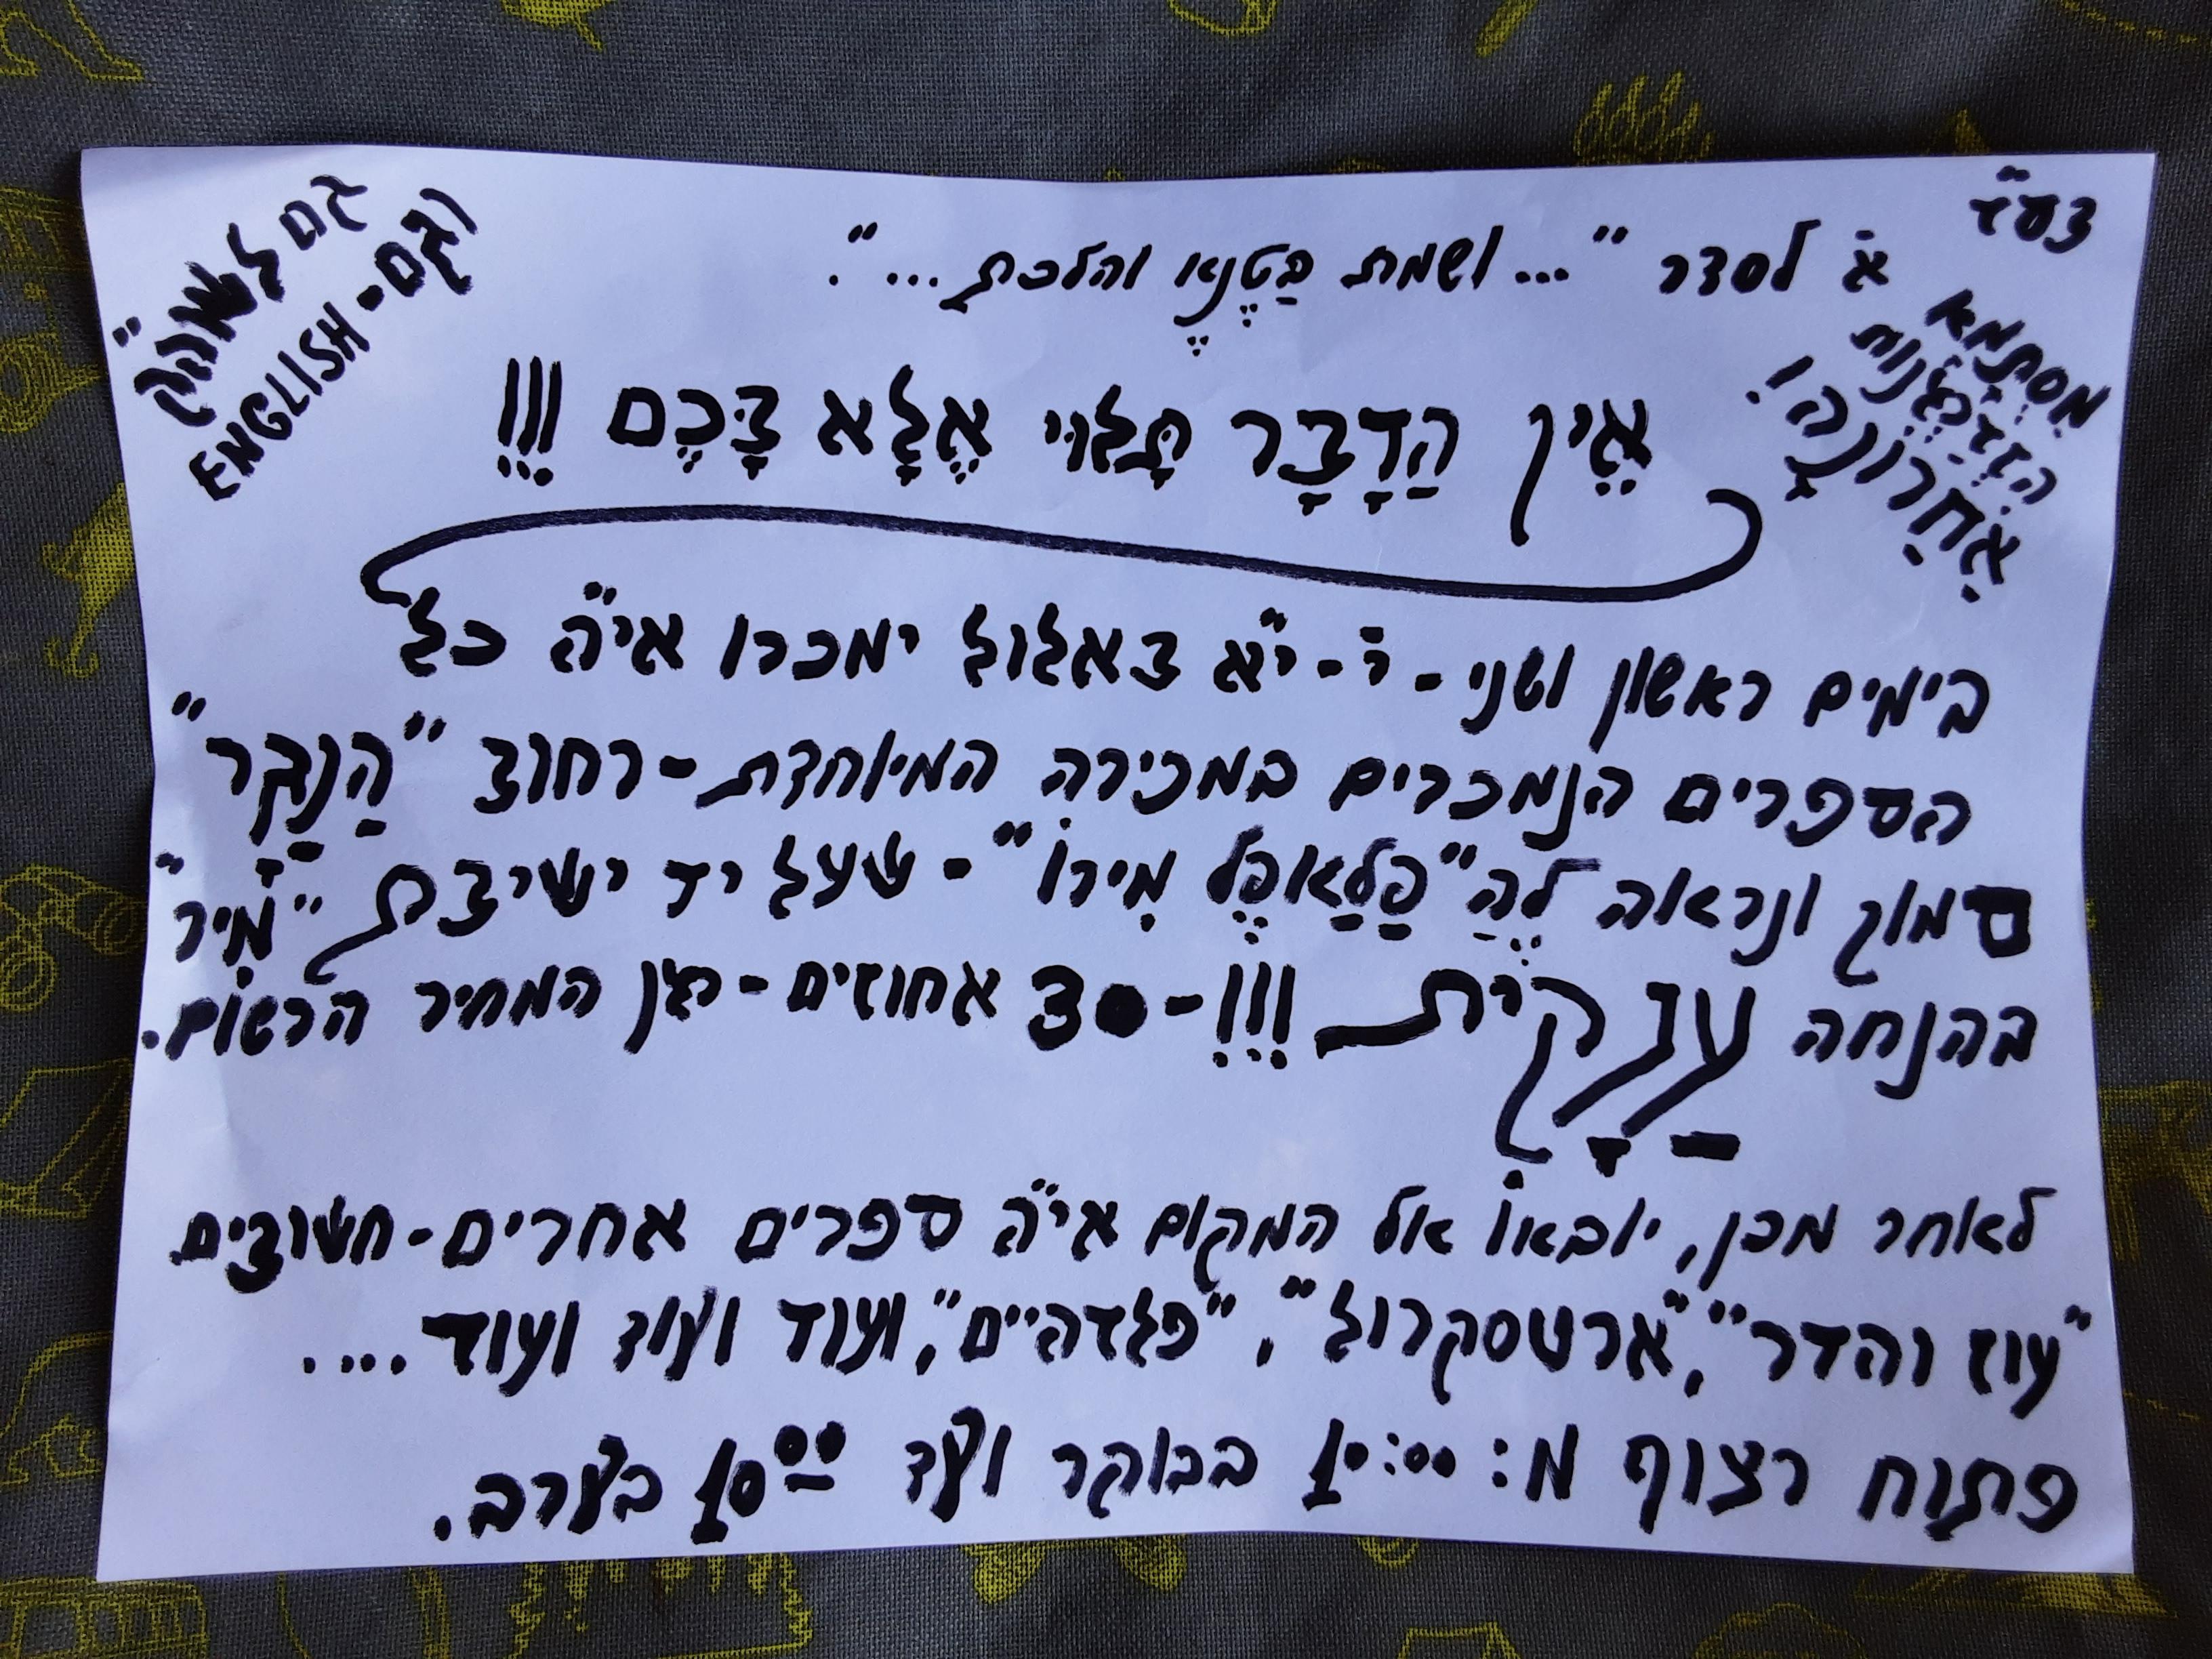 בעז"ה
א' לסדר "...ושמת בַטֶנֶא והלכת...".
מִסְתָּמָא
הִזְדַּמְּנוּת
אַחֲרוֹנָה!
גם לשוה"ק
וגם-ENGLISH
אֵין הַדָבָר תָּלוּי אֶלָּא בָּכֶם !!!
בימים ראשון ושני - י'- י"א באלול ימכרו אי"ה כל
הספרים הנמכרים במכירה המיוחדת-רחוב "הַנָגָר"
סמוך ונראה לְהַ"פַלַאפֶל מִירוֹ" - שעל יד ישיבת "מִיר"
בהנחה עֲנָקִית !!!-30 אחוזים-מן המחיר הרשום.
לאחר מכן, יובאו אל המקום אי"ה ספרים אחרים-חשובים
"עוז והדר","ארטסקרול", "פלדהיים", ועוד ועוד ועוד....
פתוח רצוף מ: 10:00 בבוקר ועד 10⁰⁰ בערב.